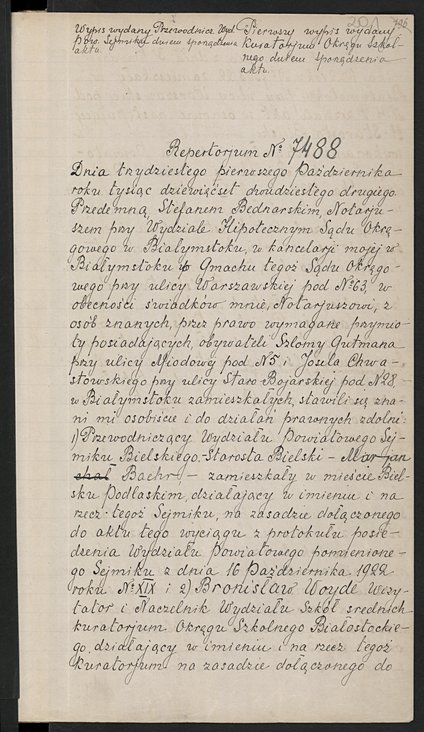 Wypis wydany Przewodnicz. Wydz.
Pow. Sejmiku dniem sporządzenia
aktu.
Pierwszy wypis wydany
Kuratorjum Okręgu Szkol-
nego dniem sporządzenia
aktu.
Repertorjum № 7488
Dnia trzydziestego pierwszego Października
roku tysiąc dziewięćset dwudziestego drugiego
Przedemną, Stefanem Bednarskim, Notarju-
szem przy Wydziale Hipotecznym Sądu Okrę-
gowego w Białymstoku, w kancelarji mojej w
Białymstoku w Gmachu tegoż Sądu Okręgo-
wego przy ulicy Warszawskiej pod №63, w
obecności świadków mnie, Notarjuszowi, z
osób znanych, przez prawo wymagane przymio-
ty posiadających, obywateli Szlomy Gutmana
przy ulicy Miodowej pod №5 i Josela Chwa-
stowskiego przy ulicy Staro Bojarskiej pod №28
w Białymstoku zamieszkałych, stawili się zna-
ni mi osobiście i do działań prawnych zdolni:
1) Przewodniczący Wydziału Powiatowego Sej-
miku Bielskiego, Starosta Bielski – Marjan
Bachr – zamieszkały w mieście Biel-
sku Podlaskim, działający w imieniu i na
rzecz tegoż Sejmiku, na zasadzie dołączonego
do aktu tego wyciągu z protokułu posie-
dzenia Wydziału Powiatowego pomienione-
go Sejmiku z dnia 16 Października 1922
roku № XIX i 2) Bronisław Woyde Wizy-
tator i Naczelnik Wydziału Szkół średnich
kuratorjum Okręgu Szkolnego Białostockie-
go, działający w imieniu i na rzecz tegoż
Kuratorjum na zasadzie dołączonego do